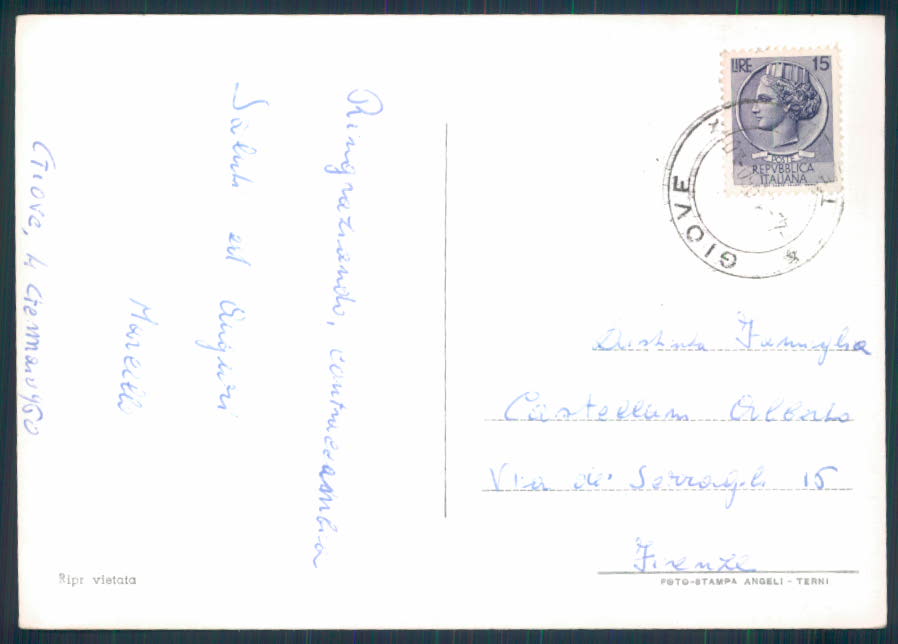 Ringraziando, contraccambia
Saluti ed Auguri
Marcello
Giove, 4 Gennaio 960
Ripr vietata
LIRE 15
POSTE
REPVBBLICA
ITALIANA
GIOVE
Distinta Famiglia
Castellani Alberto
Via de' Serragli 15
Firenze
FOTO-STAMPA ANGELI - TERNI